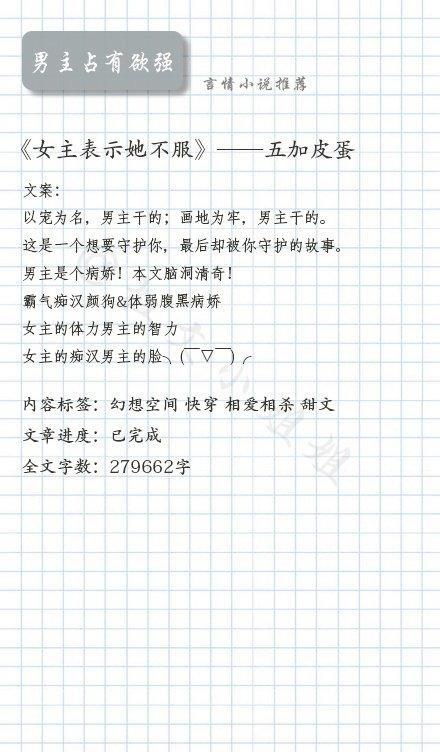 男主占有欲强
言情小说推荐
《女主表示她不服》——五加皮蛋
文案：
以宠为名，男主干的；画地为牢，男主干的。
这是一个想要守护你，最后却被你守护的故事。
男主是个病娇！本文脑洞清奇！
霸气痴汉颜狗&体弱腹黑病娇
女主的体力男主的智力
女主的痴汉男主的脸╮(￣▽￣)╭
内容标签：幻想空间 快穿 相爱相杀 甜文
文章进度：已完成
全文字数：279662字